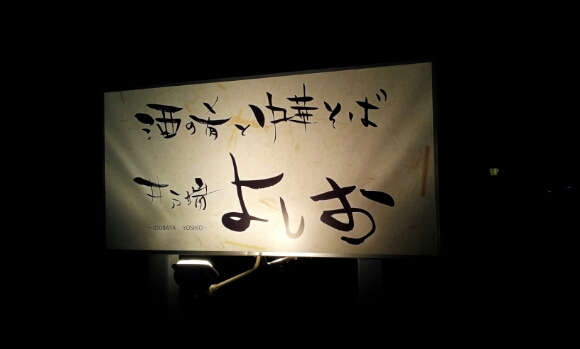 酒の肴と中華そば
井の端 よしお
−IDOBATA YOSHIO−